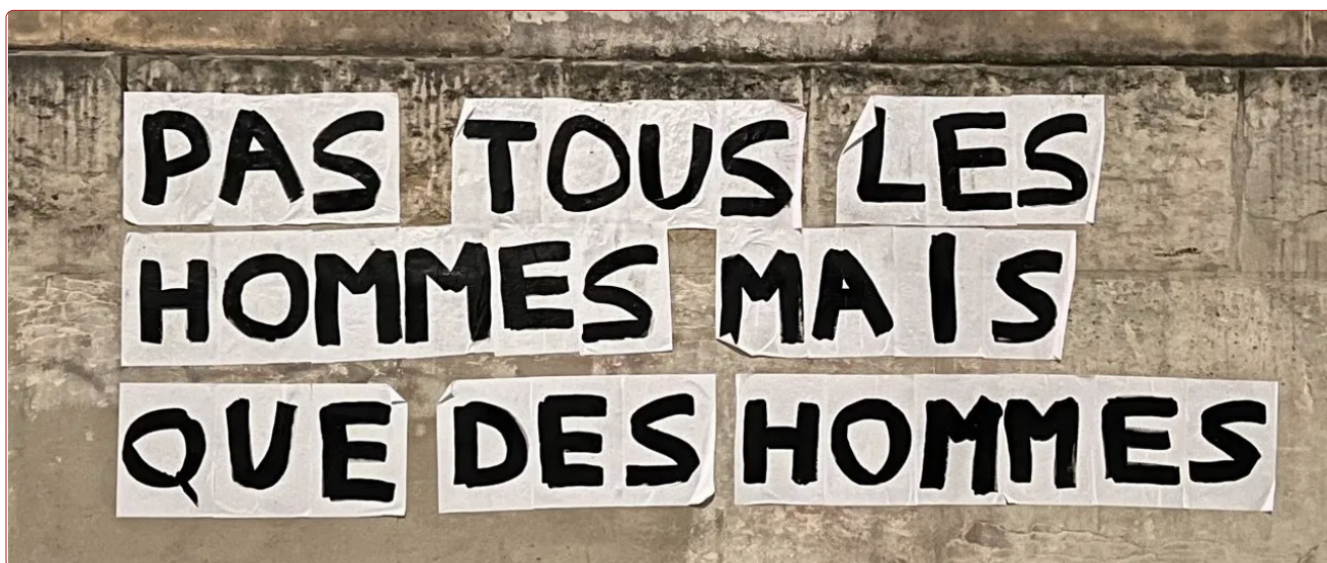 PAS TOUS LES
HOMMES MAIS
QUE DES HOMMES